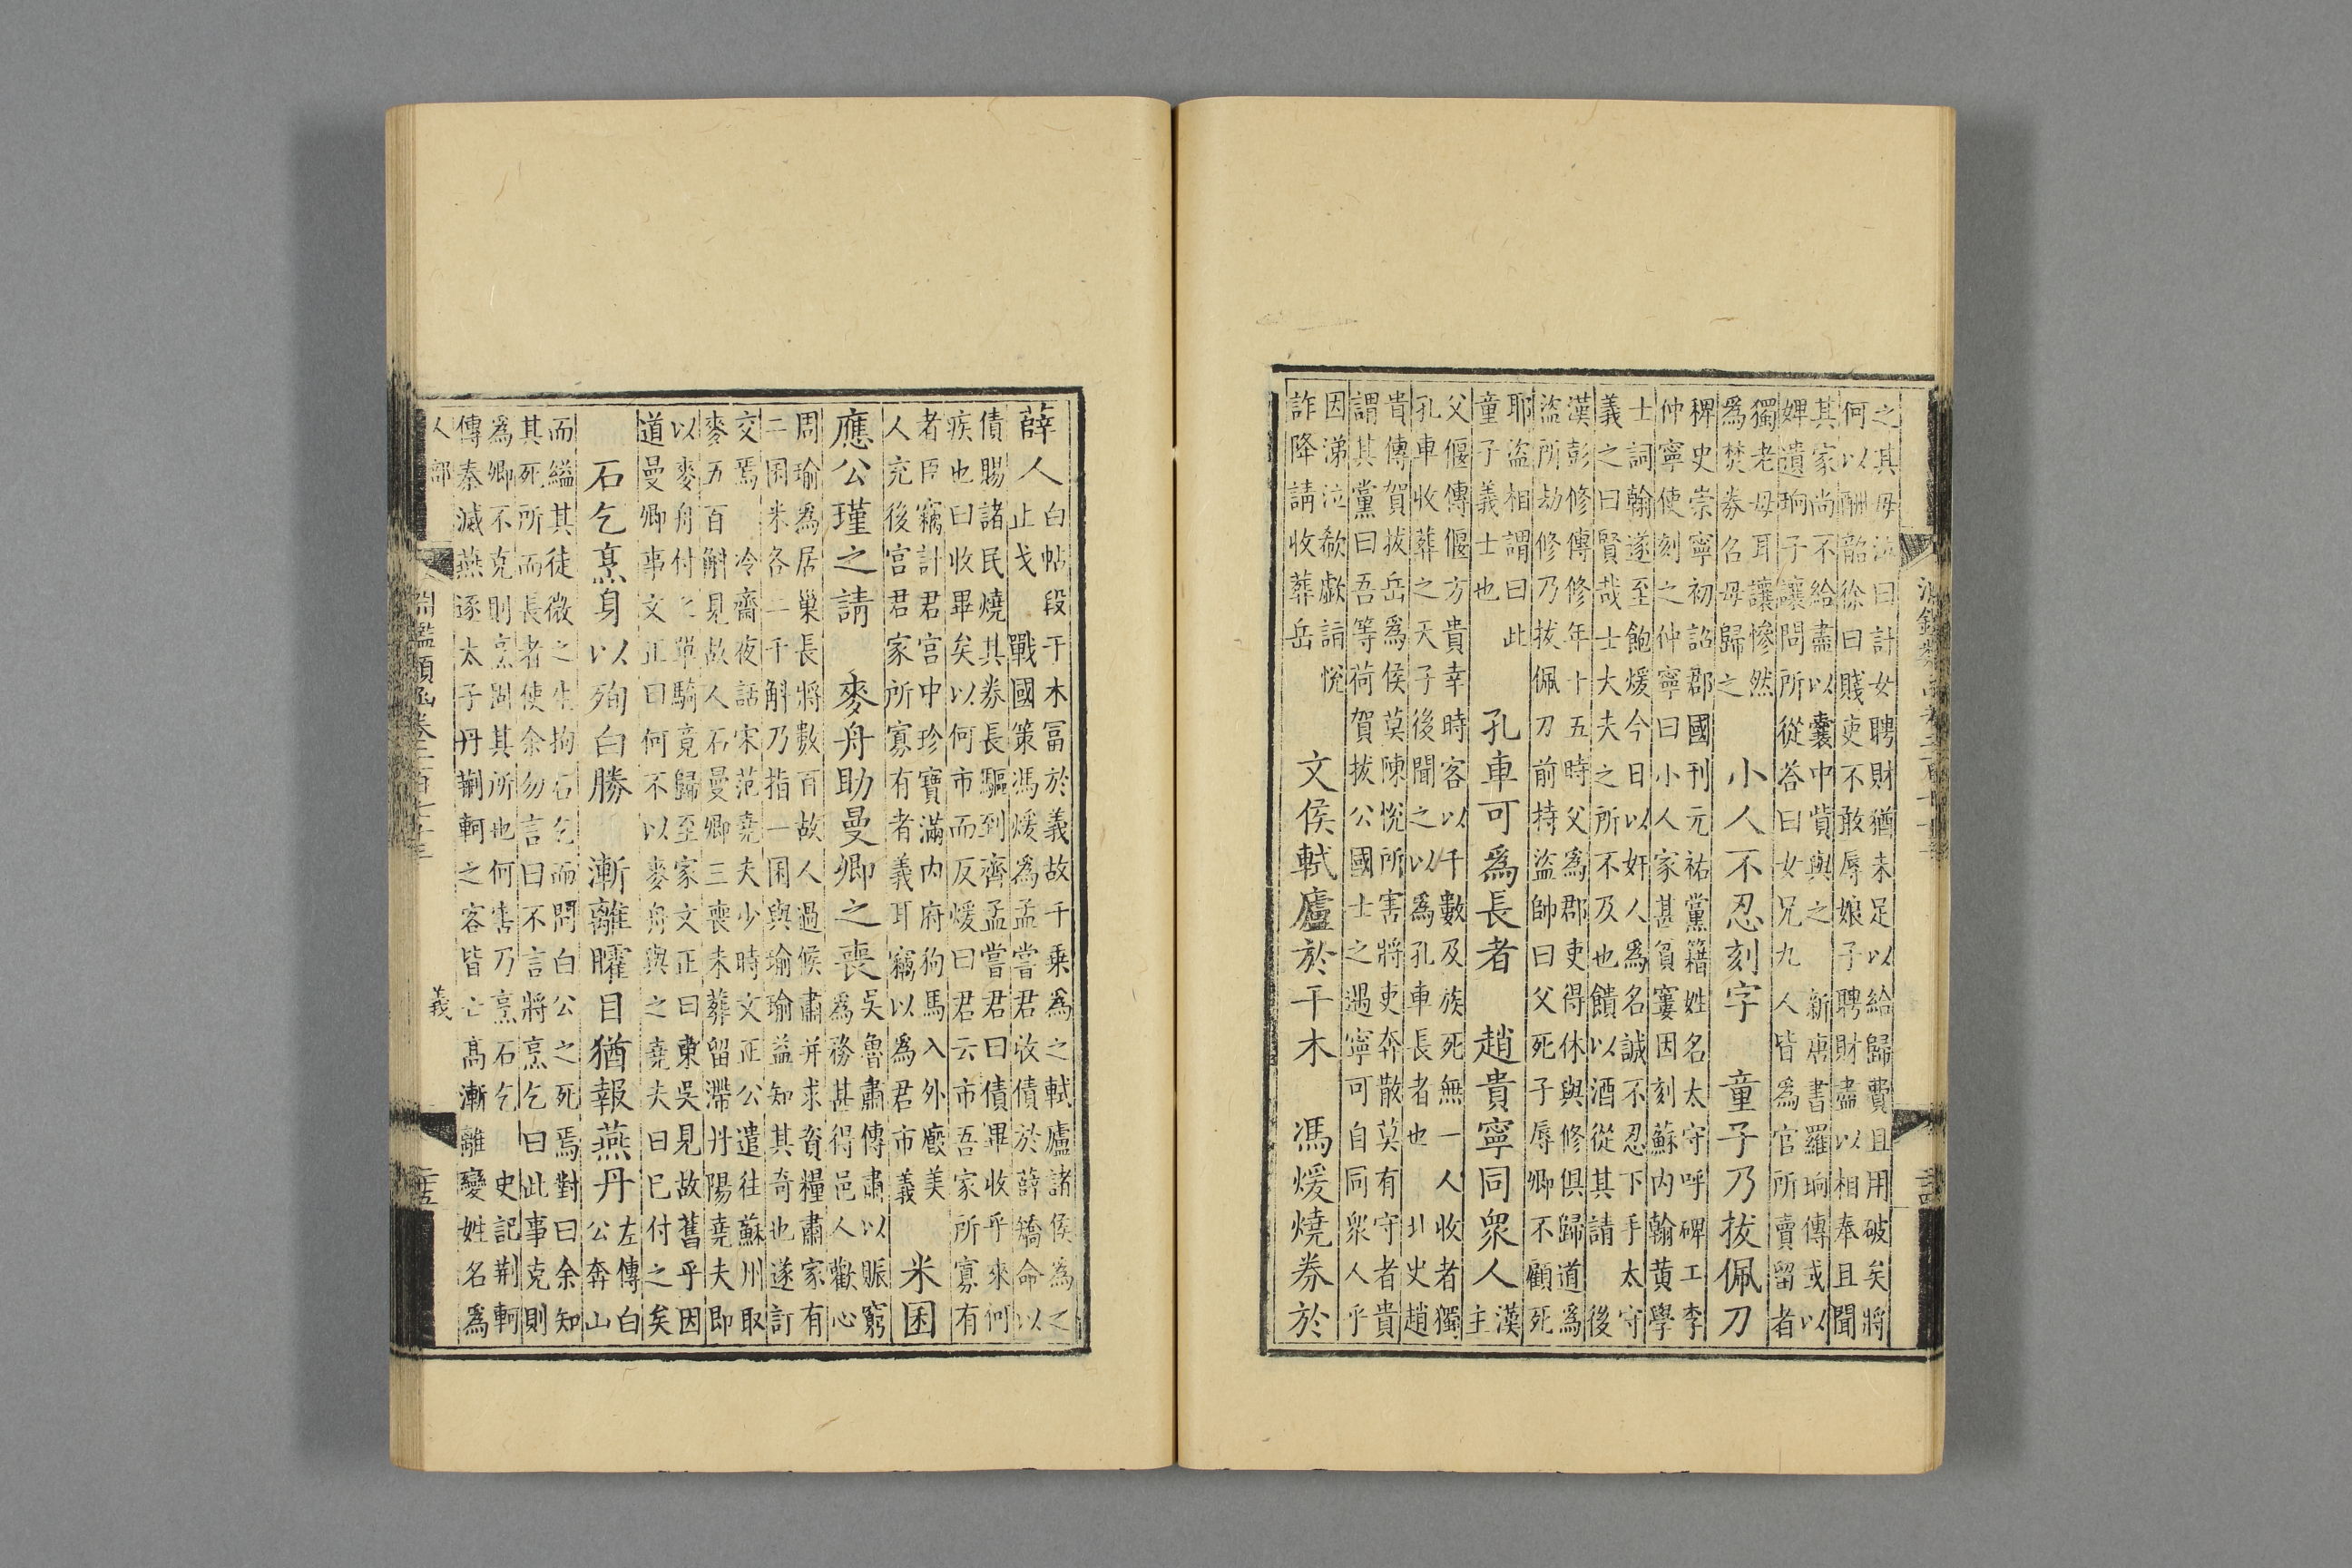 之其母泣曰計女聘財猶未足以給歸費且用破矣將
何以酬韶徐曰賤吏不敢辱娘子聘財盡以相奉且聞
其家尚不給盡以囊中貲與之 新唐書羅珦傳或以
婢遺珦子讓問所從荅曰女兄九人皆爲官所賣留者
獨老母耳讓慘然
爲焚券召母歸之
小人不忍刻字
稗史崇寧初詔郡國刊元祐黨籍姓名太守呼碑工李
仲寧使刻之仲寧曰小人家甚貧窶因刻蘇内翰黄學
士詞翰遂至飽煖今日以奸人爲名誠不忍下手太守
義之曰賢哉士大夫之所不及也饋以酒從其請
童子乃拔佩刀
後
漢彭修傳修年十五時父爲郡吏得休與修俱歸道爲
盜所劫修乃拔佩刀前持盜帥曰父死子辱卿不顧死
耶盜相謂曰此
童子義士也
孔車可爲長者
漢
主
父偃傳偃方貴幸時客以千數及族死無一人收者獨
孔車收葬之天子後聞之以爲孔車長者也
趙貴寧同衆人
北史趙
貴傳賀拔岳爲侯莫陳悅所害將吏奔散莫有守者貴
謂其黨曰吾等荷賀拔公國士之遇寧可自同衆人乎
因涕泣欷歔詣悅
詐降請收葬岳
文侯軾廬於干木 馮煖燒券於
薛人
白帖段干木富於義故千乗爲之軾廬諸侯爲之
止戈 戰國策馮煖爲孟嘗君收債於薛矯命以
債賜諸民燒其券長驅到齊孟嘗君曰債畢收乎來何
疾也曰收畢矣以何市而反煖曰君云市吾家所寡有
者臣竊計君宫中珍寶滿内府狗馬入外廐美
人充後宫君家所寡有者義耳竊以爲君市義
米囷
應公瑾之請
吳魯肅傳肅以賑窮
爲務甚得邑人歡心
周瑜爲居巢長將數百故人過候肅并求資糧肅家有
二囷米各三千斛乃指一囷與瑜瑜益知其奇也遂訂
交焉
麥舟助曼卿之喪
冷齋夜話宋范堯夫少時文正公遣往蘇州取
麥五百斛見故人石曼卿三喪未葬留滯丹陽堯夫即
以麥舟付之單騎竟歸至家文正曰東吳見故舊乎因
道曼卿事文正曰何不以麥舟與之堯夫曰已付之矣
石乞烹身以殉白勝
漸離矐目猶報燕丹
左傳白
公奔山
而縊其徒微之生拘石乞而問白公之死焉對曰余知
其死所而長者使余勿言曰不言將烹乞曰此事克則
爲卿不克則烹固其所也何害乃烹石乞 史記荆軻
傳秦滅燕逐太子丹荆軻之客皆亡高漸離變姓名爲
人部
義
淵鑑類函卷
二十五